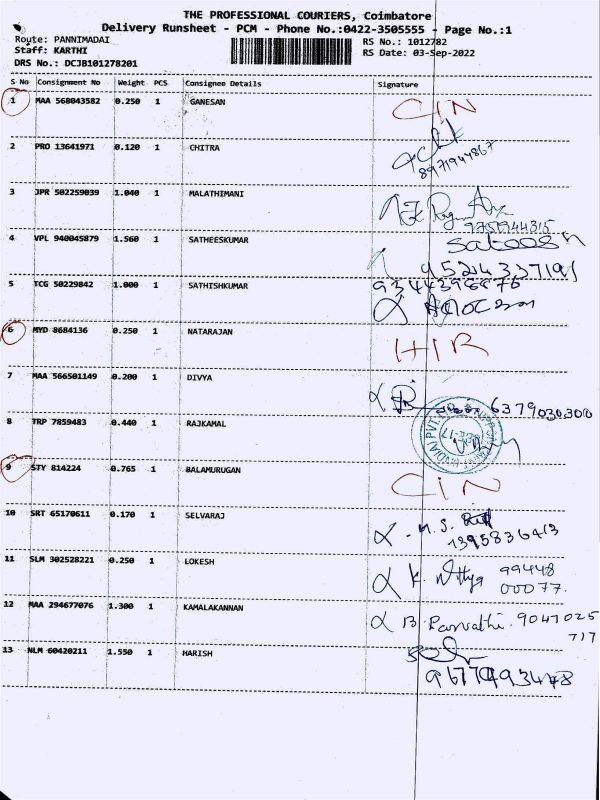 THE PROFESSIONAL COURIERS, Coimbatore
Delivery Runsheet - PCM - Phone No.:0422-3505555 - Page No.:1
Route: PANNIMADAI
RS No.: 1012782
Staff: KARTHI
RS Date: 03-Sep-2022
DRS No.: DCJB101278201
S No Consignment No Weight PCS Consignee Details Signature
1 MAA 568043582 0.250 1 GANESAN CIN
2 PRO 13641971 0.120 1 CHITRA
8971944867
3 JPR 502259039 1.040 1 MALATHIMANI
9751944315
4 VPL 940045879 1.560 1 SATHEESKUMAR
5 TCG 50229842 1.000 1 SATHISHKUMAR
6 MYD 8684136 0.250 1 NATARAJAN HIR
7 MAA 566501149 0.200 1 DIVYA
8 TRP 7859483 0.440 1 RAJKAMAL
9 STY 814224 0.765 1 BALAMURUGAN CIN
10 SRT 65170611 0.170 1 SELVARAJ
7395836413
11 SLM 302528221 0.250 1 LOKESH K. Nithya 99448
00077.
12 MAA 294677076 1.300 1 KAMALAKANNAN B. Parvathi. 9047025
717
13 NLM 60420211 1.550 1 HARISH